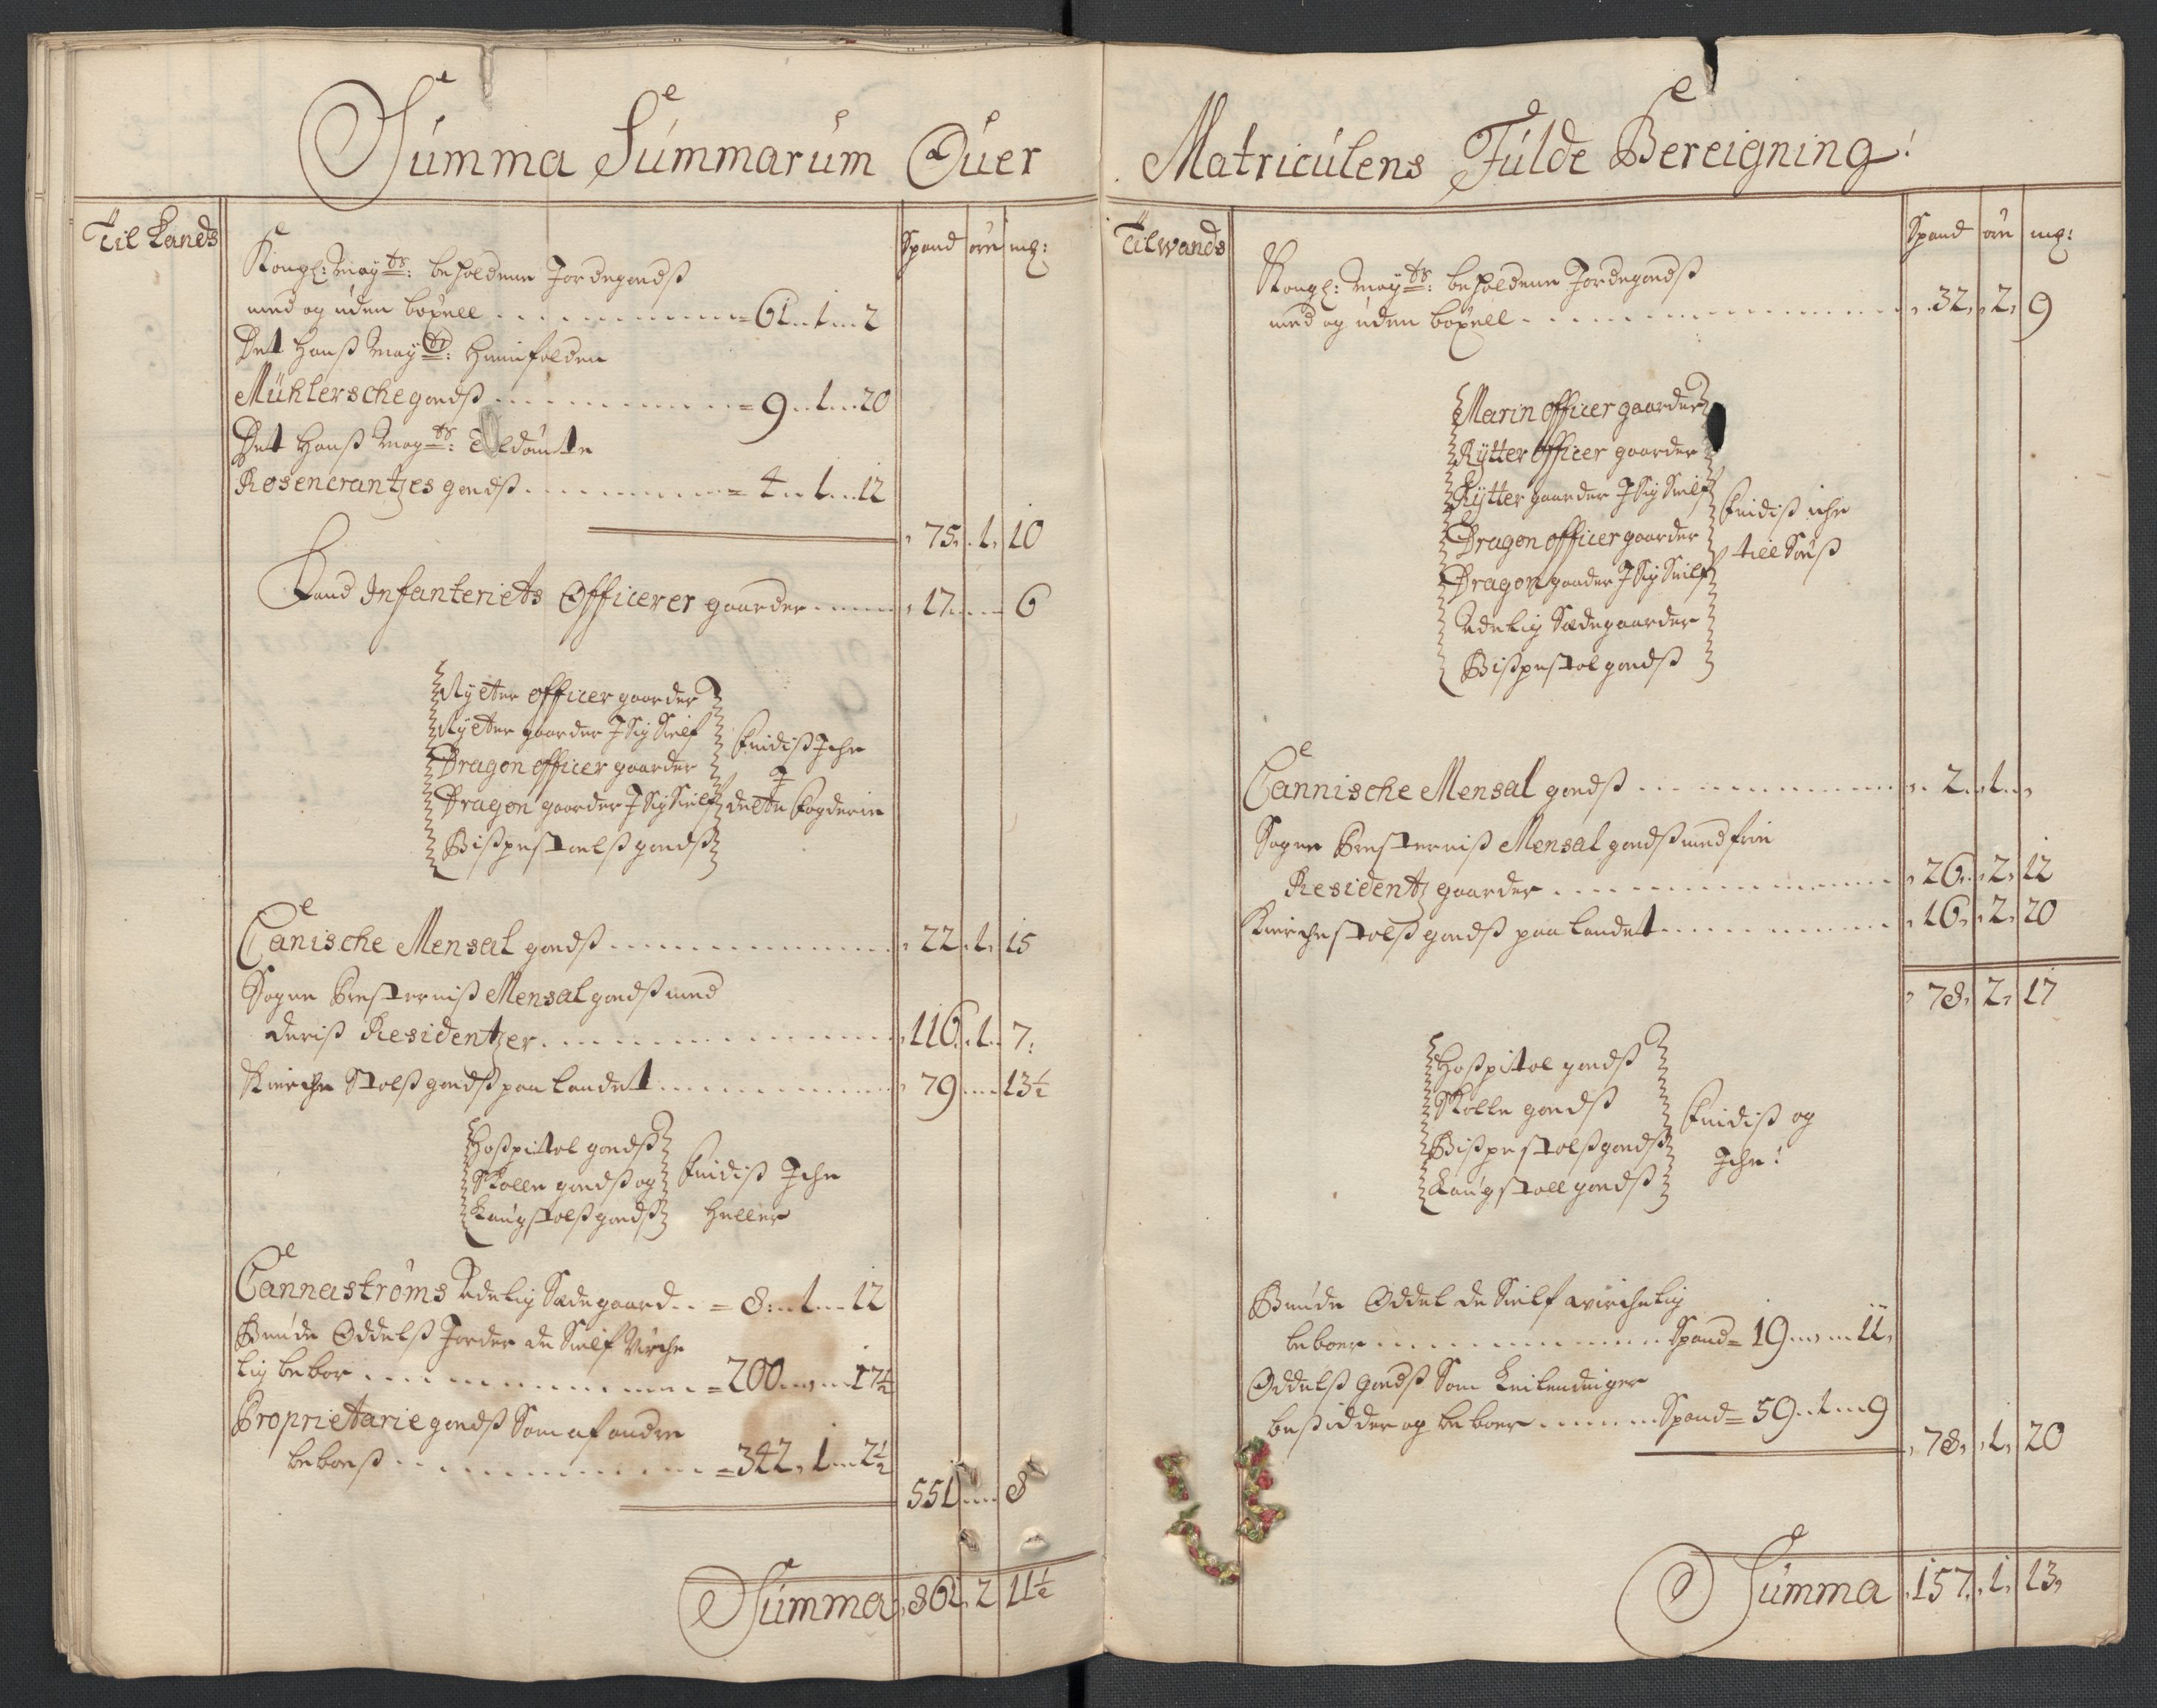 Summa Summarum Ofuer Matriculens Fulde Bereigning!
Til Lands
Spand öre mg:
Kongl: May.ts: beholdene Jordegods
med og uden böxell = 61 .. 1 .. 2
Det Hans May.tt: henfoldene
Mühlersche gods = 9 .. 1 .. 20
Det Hans May.ts:
Rosencrantzes gods = 4 .. 1 .. 12
75. 1. 10
Land Infanteriets Officerer gaarder 17 .. 6
Rytter officer gaarder
Rytter gaarder J Sig Sielf
Dragon officer gaarder
Dragon gaarder J Sig Sielf
Bispestoels gods
findis Iche
J
dette Fogderie
Canische Mensal gods 22. 1. 15
Sogne Presternis Mensal gods med
deris Residentzer 116. 1. 7:
Kierche Stols gods paa Landet 79 .. 13½
Hospital gods
Skolle gods og
Laugstols gods
findis Iche
heller
Cannaströms Adelig Sædegaard = 8: .. 1 .. 12
Bunde Oddels Jorder de Sielf Virche
lig bebor = 200 .. 17½
Proprietarie gods Som af andre
beboes = 342, 1 .. 2½
551 .. 8
Summa 861. 2 11½
Til wands
Spand öre mg:
Kongl: May.ts: beholdene Jordegods
med og uden böxell 32, 2, 9
Marin officer gaarder
Rÿtter Officer gaarder
Rÿtter gaarder J Sig Sielf
Dragon officer gaarder
Dragon gaarder J Sig Sielf
Adelig Sædegaarder
Bispestol gods
findis iche
till Söes
Cannische Mensal gods 2. 1.
Sogne Presternis Mensal gods med frie
Residentz gaarder 26. 2, 12
Kierchestols gods paa Landet 16, 2, 20
78, 2, 17
Hospital gods
Skolle gods
Bispestols gods
Laugstoll gods
findis og
Iche!
Bunde Oddel de Sielf wirchelig
beboer Spand = 19 .. 11,
Oddels Gods Som Leilendinger
besidder og beboer Spand = 59 .. 1 .. 9
78, 1, 20
Summa 157, 1, 13,